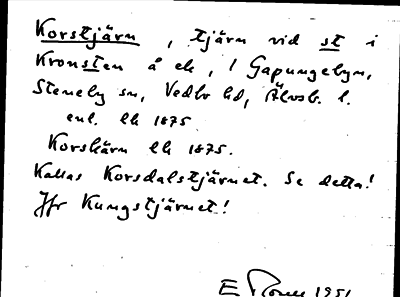 Korstjärn, tjärn vid st i
Kronsten å ek, i Gapungebyn,
Steneby sn, Vedbo hd, Älvsb. l.
enl. Ek 1875
Korskärn Ek 1875.
Kallas Korsdalstjärnet. Se detta!
Jfr Kungstjärnet!
E 1951